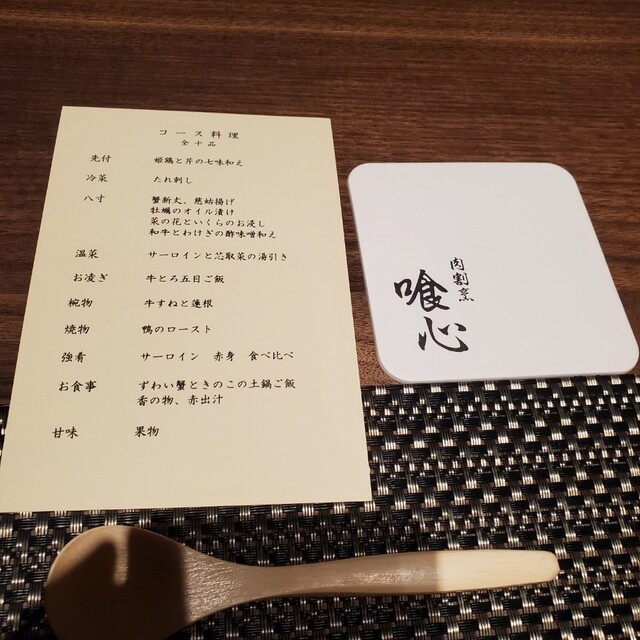 コース料理
全十品
先付 姫鶏と芹の七味和え
冷菜 たれ刺し
八寸 蟹新丈、慈姑揚げ
牡蠣のオイル漬け
菜の花といくらのお浸し
和牛とわけぎの酢味噌和え
温菜 サーロインと芯取菜の湯引き
お凌ぎ 牛とろ五目ご飯
椀物 牛すねと蓮根
焼物 鴨のロースト
強肴 サーロイン 赤身 食べ比べ
お食事 ずわい蟹ときのこの土鍋ご飯
香の物、赤出汁
甘味 果物
肉割烹
喰心